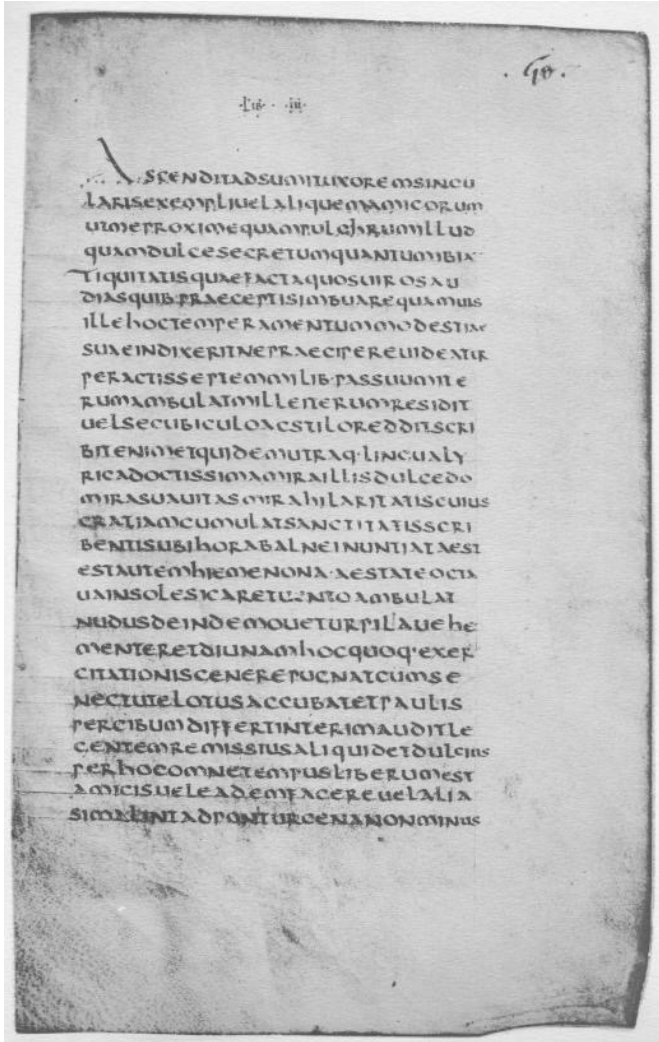 ·LIB· · III·
ASCENDITADSUMITUXOREMSINGU
LARISEXEMPLIUELALIQUEMAMICORUM
UTMEPROXIMEQUAMPULCHRUMILLUD
QUAMDULCESECRETUMQUANTUMIBIA
TIQUITATISQUAEFACTAQUOSUIROSAU
DIASQUIB·PRAECEPTISIMBUAREQUAMUIS
ILLEHOCTEMPERAMENTUMMODESTIAE
SUAEINDIXERITNEPRAECIPEREUIDEATUR
PERACTISSEPTEMMILIB·PASSUUMITE
RUMAMBULATMILLEITERUMRESIDIT
UELSECUBICULOACSTILOREDDITSCRI
BITENIMETQUIDEMUTRAQ·LINGUALY
RICADOCTISSIMAMIRAILLISDULCEDO
MIRASUAUITASMIRAHILARITATISCUIUS
GRATIAMCUMULATSANCTITATISSCRI
BENTISUBIHORABALNEINUNTIATAEST
ESTAUTEMHIEMENONA·AESTATEOCTA
UAINSOLESICARETUENTOAMBULAT
NUDUSDEINDEMOUETURPILAUEHE
MENTERETDIUNAMHOCQUOQ·EXER
CITATIONISGENEREPUGNATCUMSE
NECTUTELOTUSACCUBATETPAULIS
PERCIBUMDIFFERTINTERIMAUDITLE
GENTEMREMISSIUSALIQUIDETDULCIUS
PERHOCOMNETEMPUSLIBERUMEST
AMICISUELEADEMFACEREUELALIA
SIMALINTADPONTURCENANONMINUS